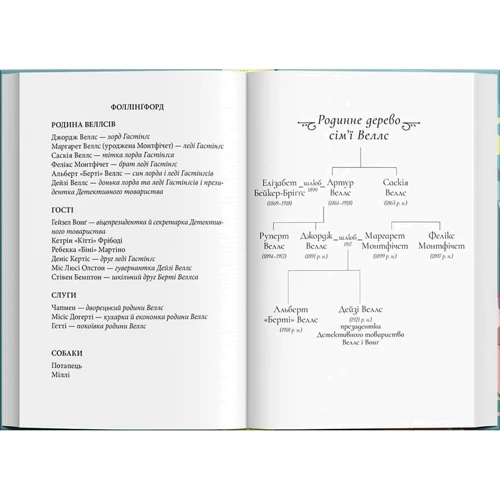 ФОЛЛІНҐФОРД
РОДИНА ВЕЛЛСІВ
Джордж Веллс — лорд Гастінґс
Маргарет Веллс (уроджена Монтфічет) — леді Гастінґс
Саскія Веллс — тітка лорда Гастінґса
Фелікс Монтфічет — брат леді Гастінґс
Альберт «Берті» Веллс — син лорда і леді Гастінґсів
Дейзі Веллс — донька лорда та леді Гастінґсів і прези-
дентка Детективного товариства
ГОСТІ
Гейзел Вонґ — віцепрезидентка й секретарка Детектив-
ного товариства
Кетрін «Кітті» Фрібоді
Ребекка «Біні» Мартіно
Деніс Кертіс — друг леді Гастінґс
Міс Люсі Олстон — гувернантка Дейзі Веллс
Стівен Бемптон — шкільний друг Берті Веллса
СЛУГИ
Чапмен — дворецький родини Веллс
Місіс Догерті — кухарка й економка родини Веллс
Гетті — покоївка родини Веллс
СОБАКИ
Потапець
Міллі
Родинне дерево
сім’ї Веллс
Елізабет шлюб Артур Саскія
Бейкер-Бріґґс 1890 Веллс Веллс
(1869–1918) (1861–1918) (1865 р.н.)
Руперт Джордж шлюб Маргарет Фелікс
Веллс Веллс 1917 Монтфічет Монтфічет
(1894–1917) (1891 р.н.) (1899 р.н.) (1897 р.н.)
Альберт Дейзі Веллс
«Берті» Веллс (1921 р.н.)
(1918 р.н.) президентка
Детективного товариства
Веллс і Вонґ